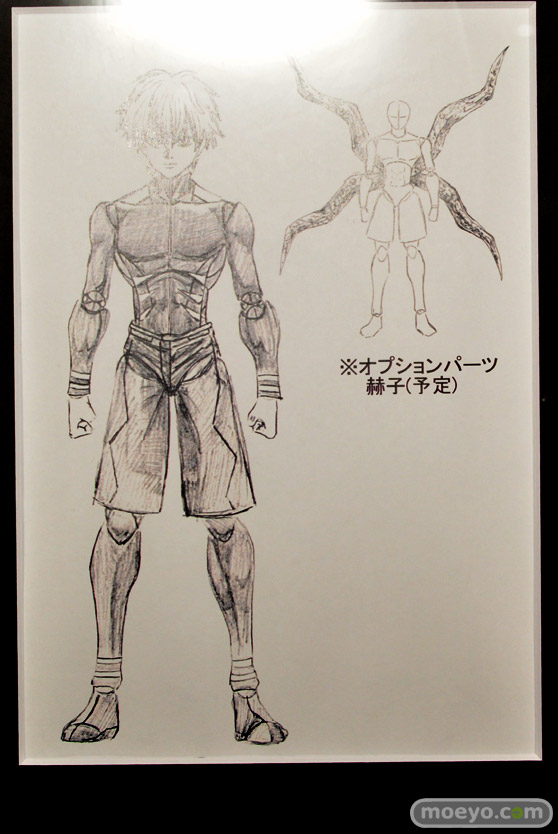 ※オプションパーツ
赫子(予定)
moeyo.com